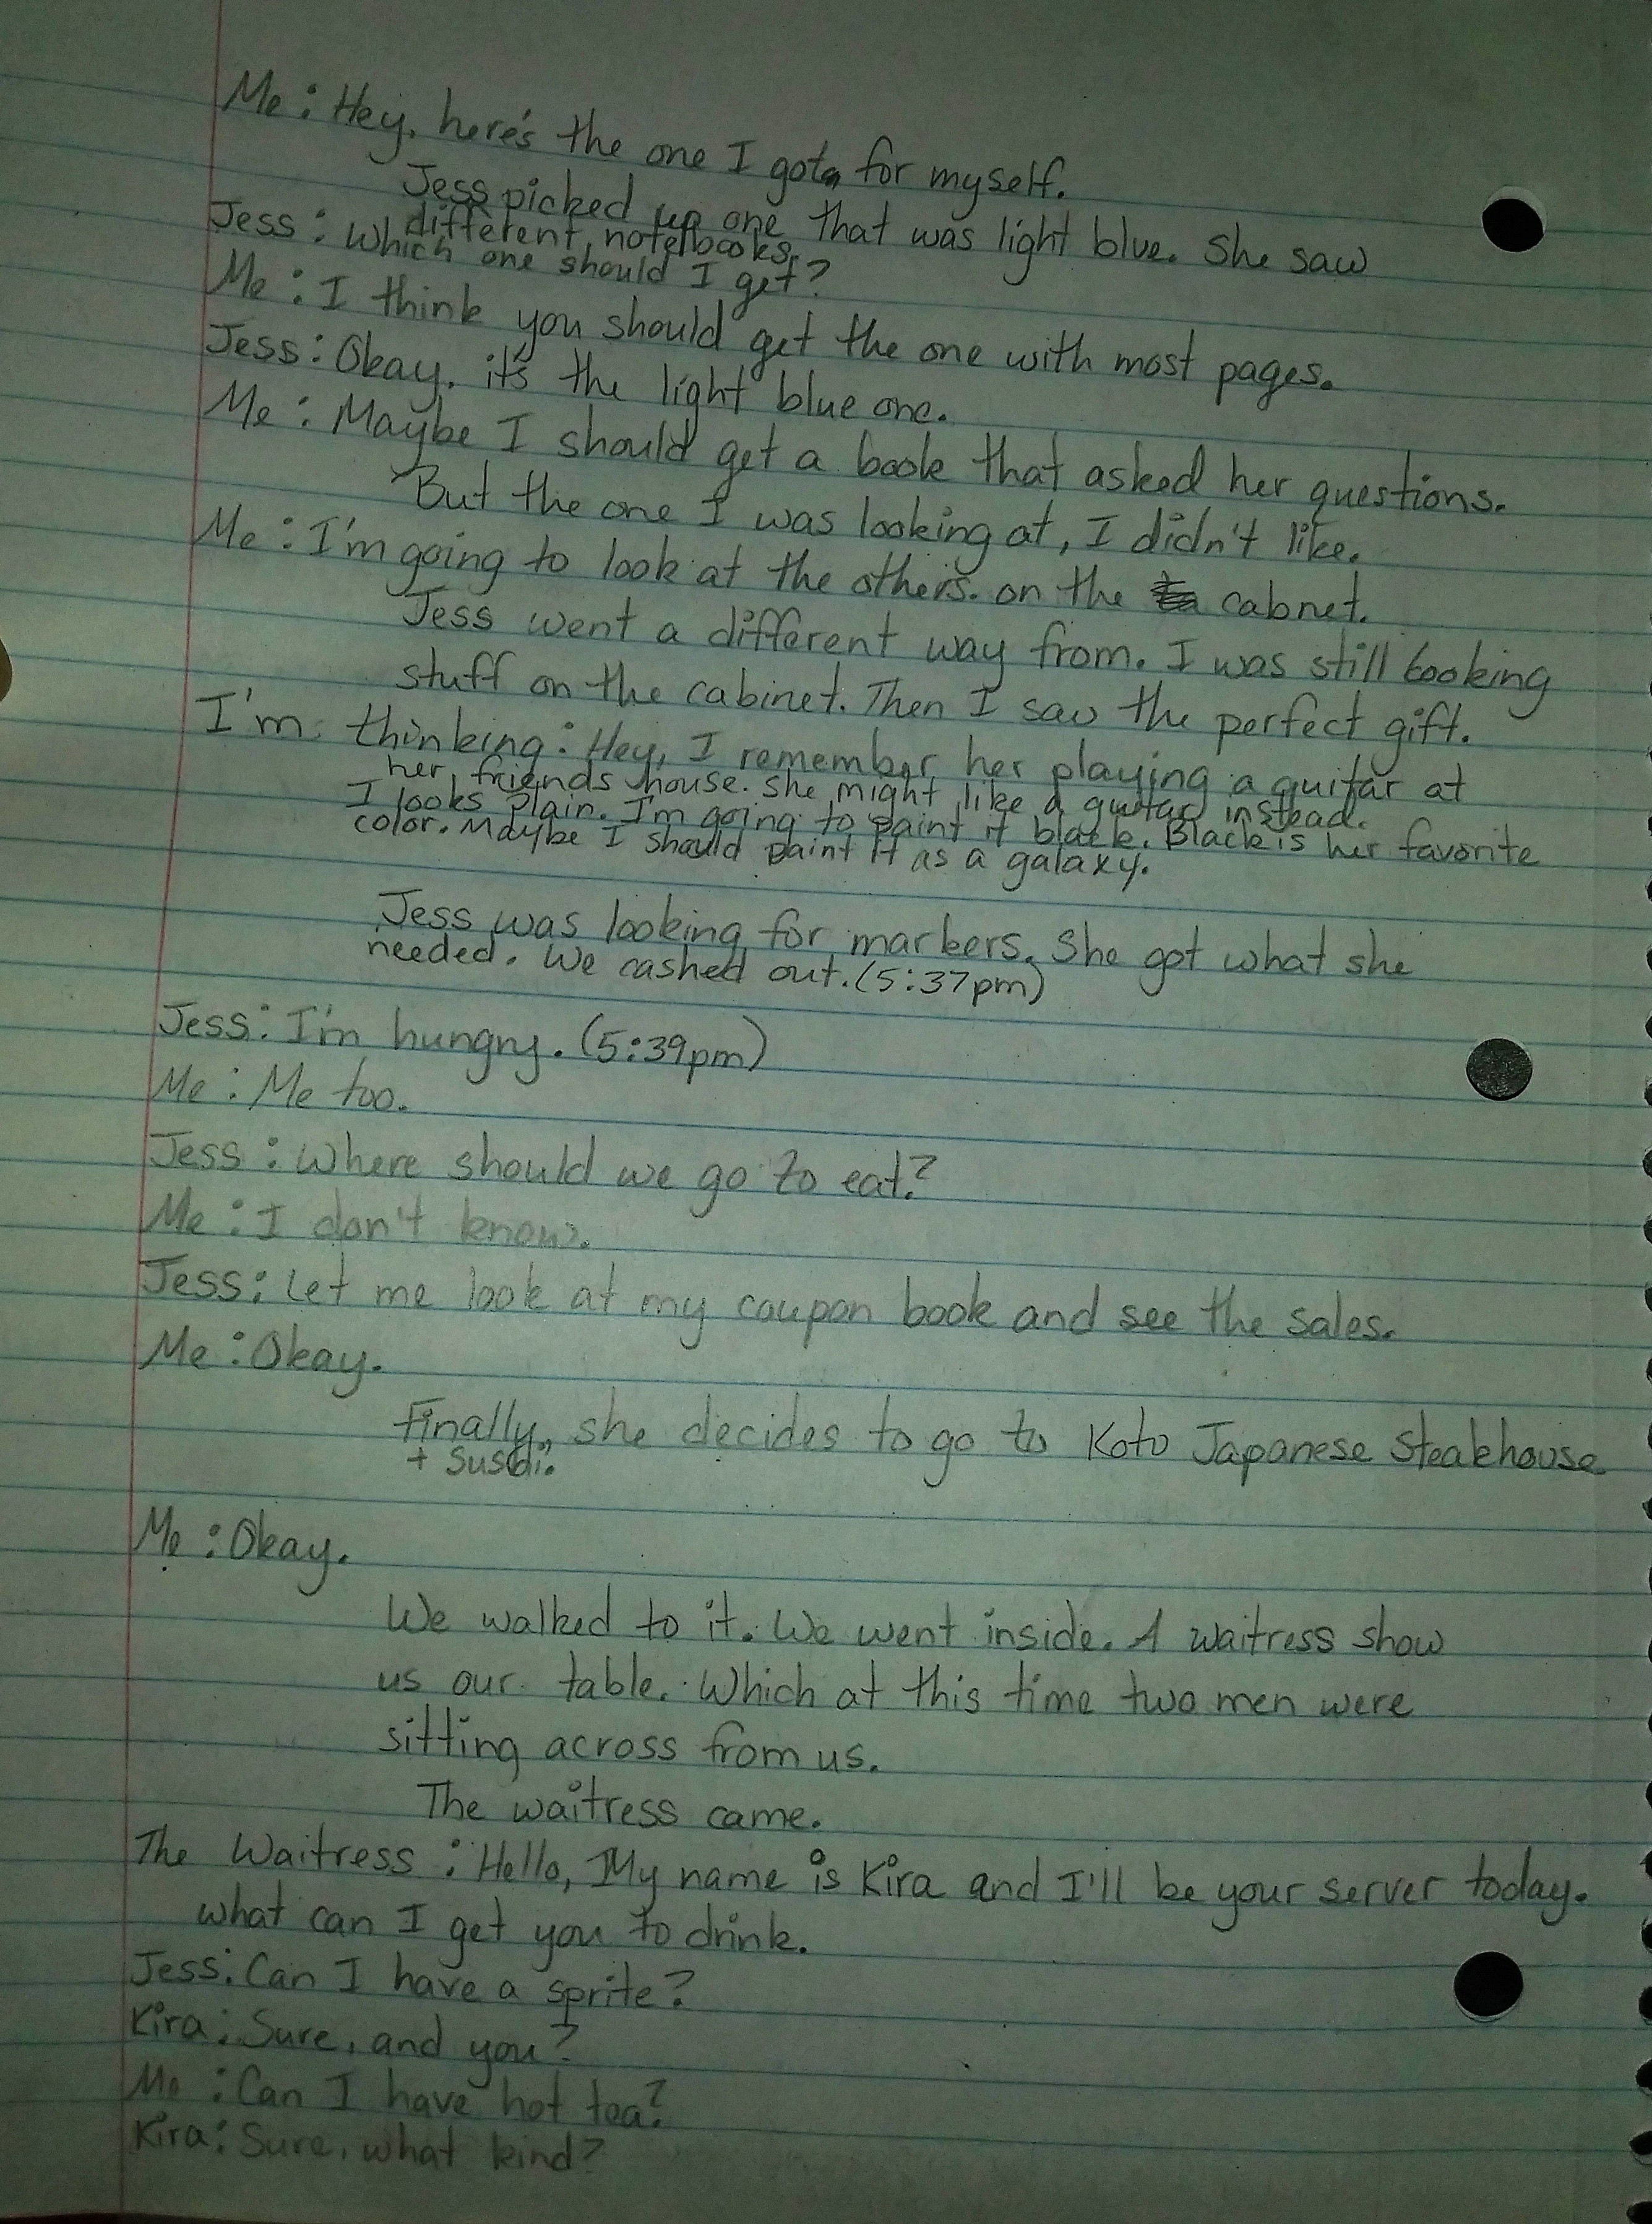 Me: Hey, here's the one I got for myself.
Jess picked up one that was light blue. She saw
different notebooks.
Jess: Which one should I get?
Me: I think you should get the one with most pages.
Jess: Okay. it's the light blue one.
Me: Maybe I should get a book that asked her questions.
But the one I was looking at, I didn't like.
Me: I'm going to look at the others. on the cabnet.
Jess went a different way from. I was still looking
stuff on the cabinet. Then I saw the perfect gift.
I'm thinking: Hey, I remember her playing a guitar at
her friends house. She might like a guitar instead.
I looks plain. I'm going to paint it black. Black is her favorite
color. Maybe I should paint it as a galaxy.
Jess was looking for markers. She got what she
needed. We cashed out. (5:37pm)
Jess: I'm hungry. (5:39pm)
Me: Me too.
Jess: Where should we go to eat?
Me: I don't know.
Jess: Let me look at my coupon book and see the sales.
Me: Okay.
Finally, she decides to go to Koto Japanese Steakhouse
+ Sushi.
Me: Okay.
We walked to it. We went inside. A waitress show
us our table. Which at this time two men were
sitting across from us.
The waitress came.
The Waitress: Hello, My name is Kira and I'll be your server today.
what can I get you to drink.
Jess: Can I have a sprite?
Kira: Sure, and you?
Me: Can I have hot tea?
Kira: Sure, what kind?